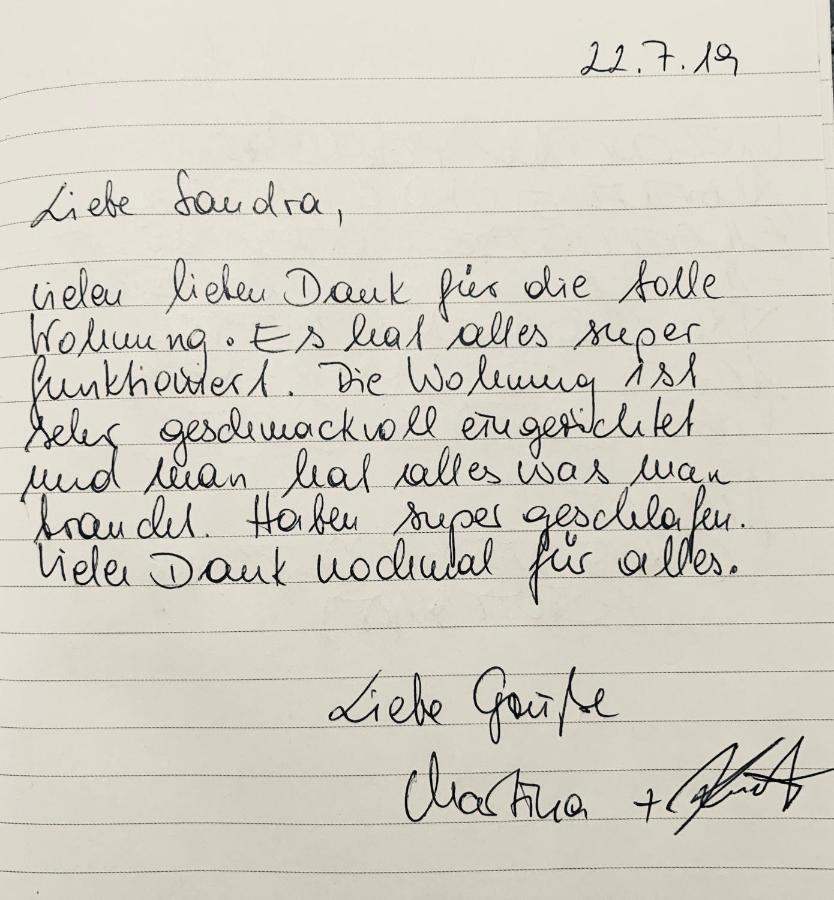 22.7.19
Liebe Sandra,
vielen lieben Dank für die tolle
Wohnung. Es hat alles super
funktioniert. Die Wohnung ist
sehr geschmackvoll eingerichtet
und man hat alles was man
braucht. Haben super geschlafen.
Vielen Dank nochmal für alles.
Liebe Grüße
Martina +